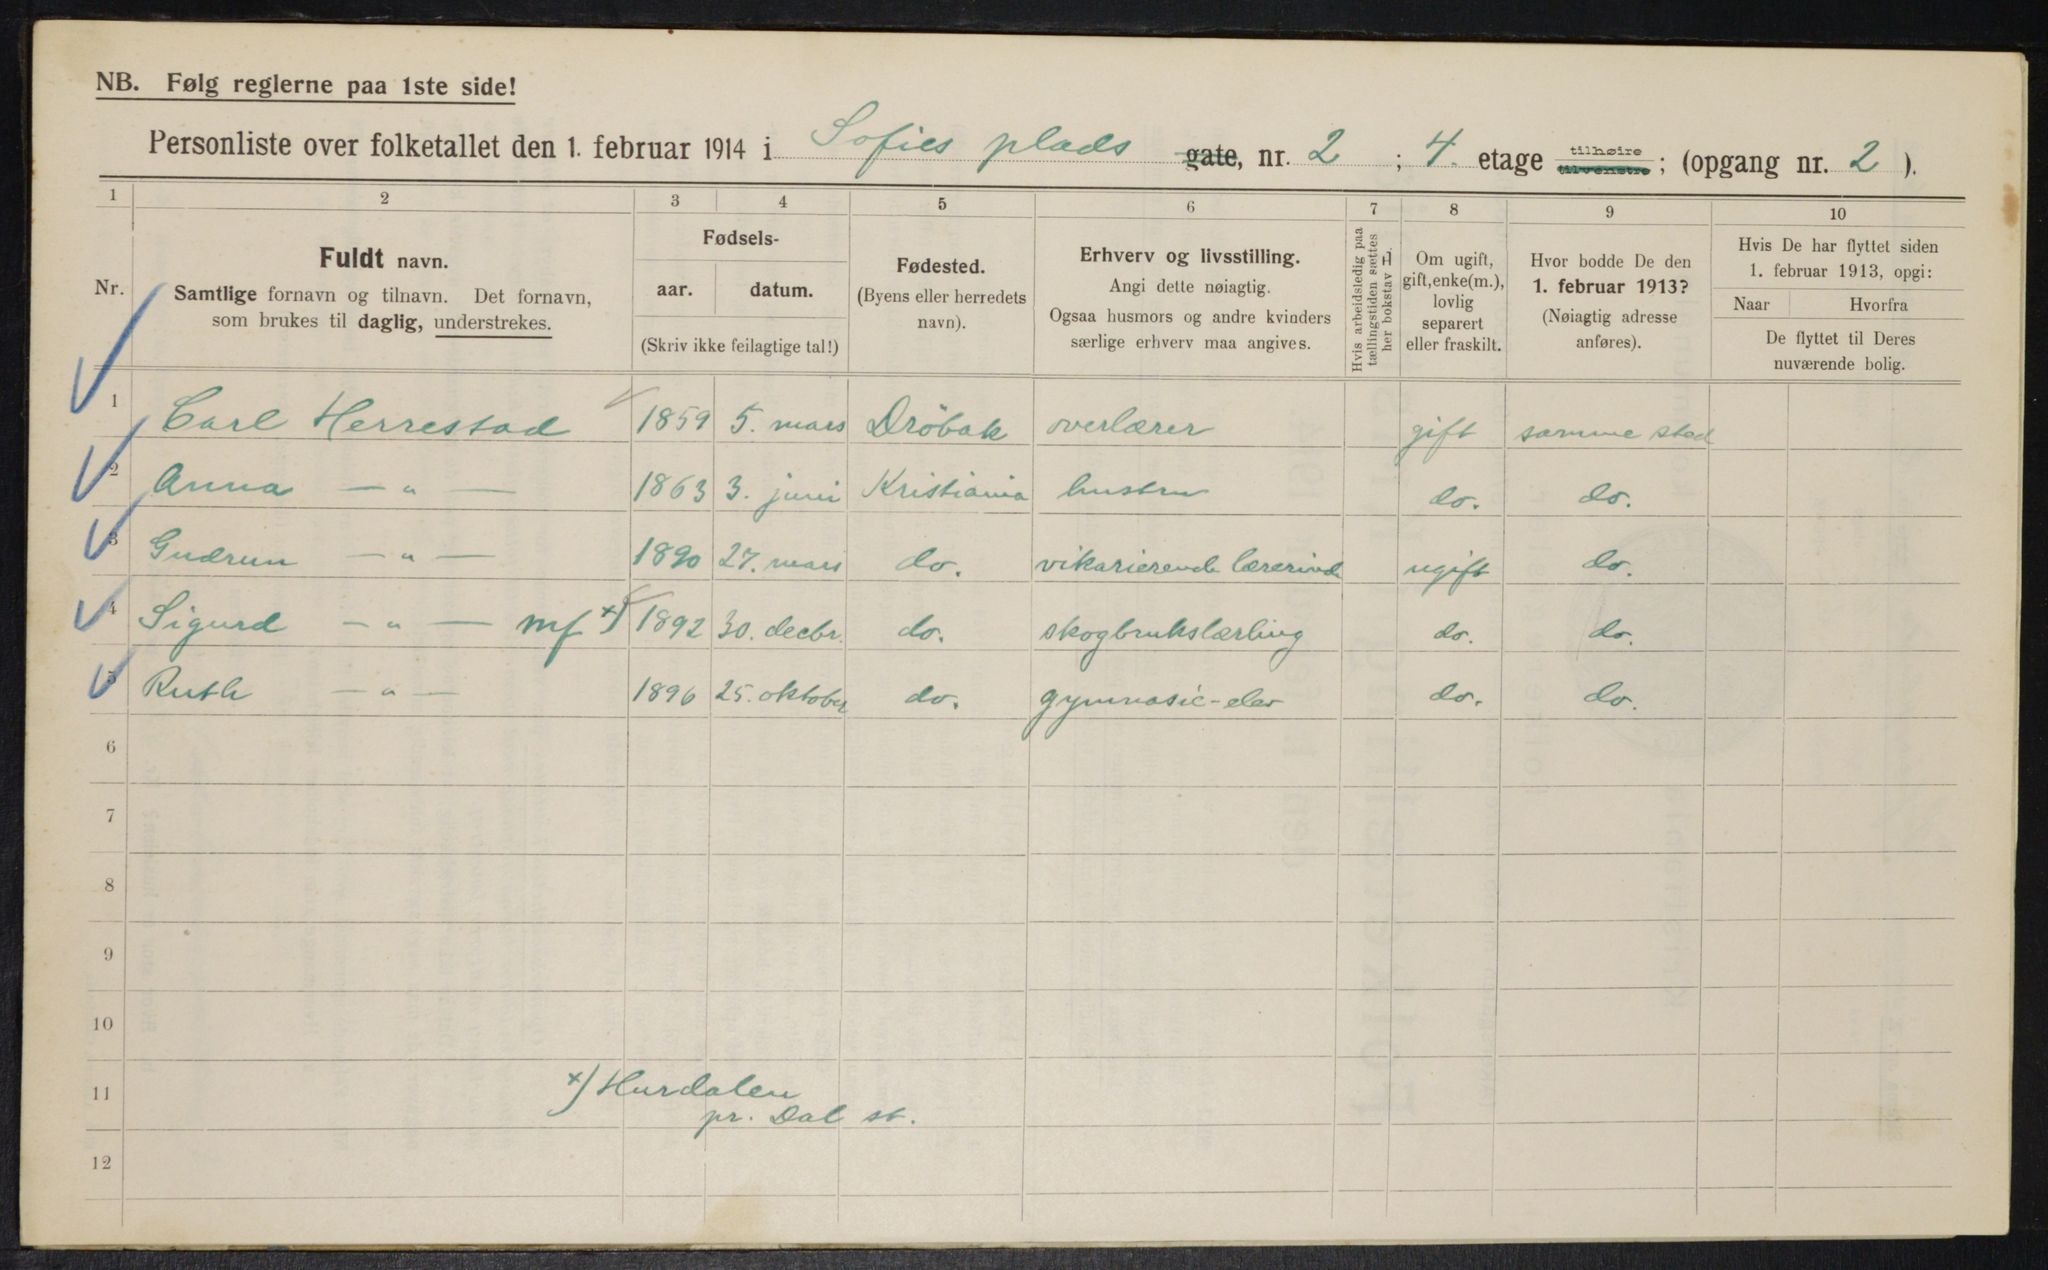 NB. Følg reglerne paa 1ste side!
Personliste over folketallet den 1. februar 1914 i Sofies plads gate, nr. 2 ; 4. etage tilhøire tilvenstre ; (opgang nr. 2 ).
1 2 3 4 5 6 7 8 9 10
Nr.
Fuldt navn.
Samtlige fornavn og tilnavn. Det fornavn,
som brukes til daglig, understrekes.
Fødsels-
aar. datum.
(Skriv ikke feilagtige tal!)
Fødested.
(Byens eller herredets
navn).
Erhverv og livsstilling.
Angi dette nøiagtig.
Ogsaa husmors og andre kvinders
særlige erhverv maa angives.
Hvis arbeidsledig paa
tællingstiden sættes
her bokstav L.
Om ugift,
gift, enke(m.),
lovlig
separert
eller fraskilt.
Hvor bodde De den
1. februar 1913?
(Nøiagtig adresse
anføres).
Hvis De har flyttet siden
1. februar 1913, opgi:
Naar Hvorfra
De flyttet til Deres
nuværende bolig.
1 Carl Herrestad 1859 5. mars Drøbak overlærer gift samme sted
2 Anna — " — 1863 3. juni Kristiania hustru do. do.
3 Gudrun — " — 1890 27. mars do. vikarierende lærerinde ugift do.
4 Sigurd — " — mf x) 1892 30. decbr. do. skogbrukslærling do. do.
5 Ruth — " — 1896 25. oktober do. gymnasie-elev do. do.
6
7
8
9
10
11 x) Hurdalen
pr. Dal st.
12